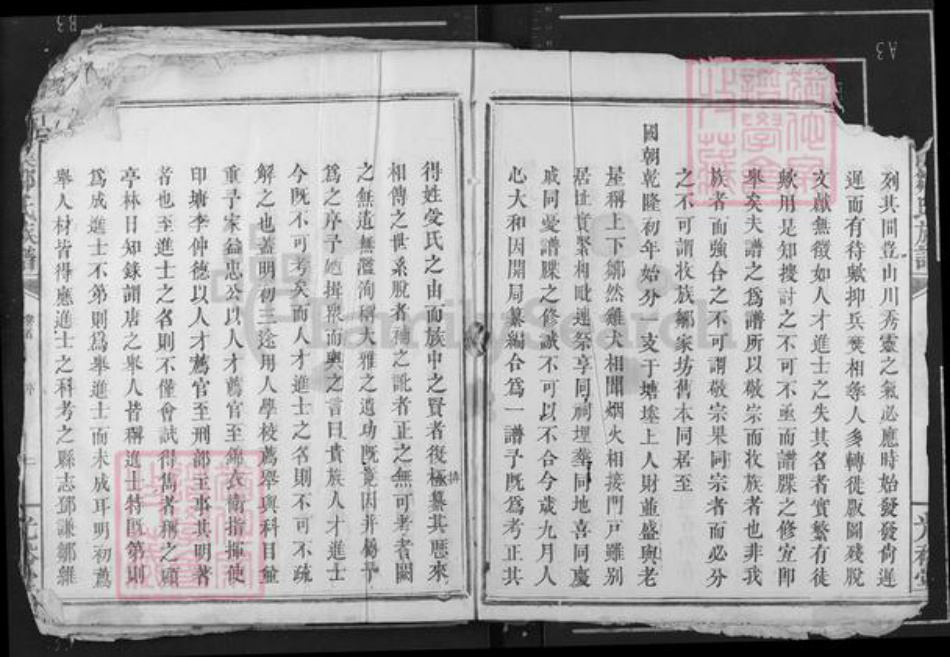 列其間登山川秀靈之氣必應時始發發尙遲
遲而有待歟抑兵燹相尋人多轉徙版圖殘脫
文獻無徵如人才進士之失其名者實繁有徒
歟用是知搜討之不可不亟而譜牒之修宜卽
舉矣夫譜之爲譜所以敬宗而收族者也非我
族者而強合之不可謂敬宗果同宗者而必分
之不可謂收族鄒家坊舊本同居至
國朝乾隆初年始分 支于塘塍上人財並盛與老
屋稱上下鄒然雞犬相聞烟火相接門戸雖别
居址實緊相毗連祭享同祠埋葬同地喜同慶
戚同憂譜牒之修誠不可以不合今歲九月人
心大和因開局纂編合爲一譜予既爲考正其
得姓受氏之由而族中之賢者後極纂其歷來
相傳之世系脫者補之訛者正之無可考者闕
之無遺無濫洵稱大雅之遺功既竟因并屬予
爲之序予廼揖衆而興之言曰貴族人才進士
今既不可考矣而人才進士之名則不可不疏
解之也蓋明初三途用人學校薦舉與科目並
重予家益忠公以人才薦官至錦衣衛指揮使
印塘李仲德以人才薦官至刑部主事其明著
者也至進士之名則不僅會試得雋者稱之顧
亭林日知錄謂唐之舉人皆稱進士特既第則
爲成進士不第則爲舉進士而未成耳明初薦
舉人材皆得應進士之科考之縣志鄧謙鄒雛
鄒氏族譜
序